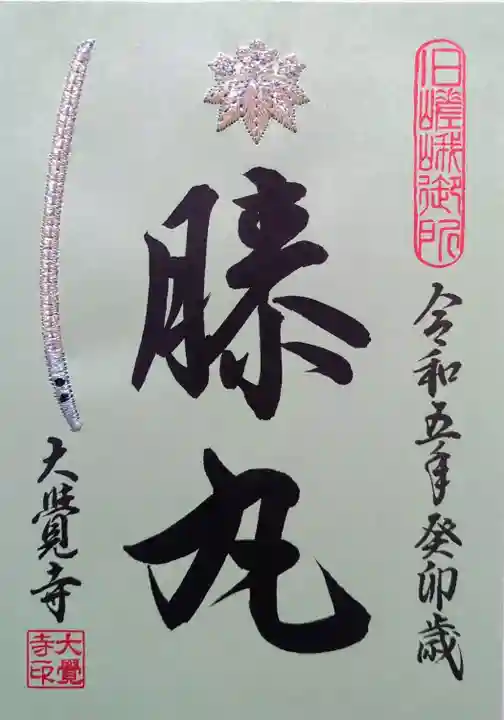 旧嵯峨御所
令和五年癸卯歳
膝丸
大覺寺
大覺寺印